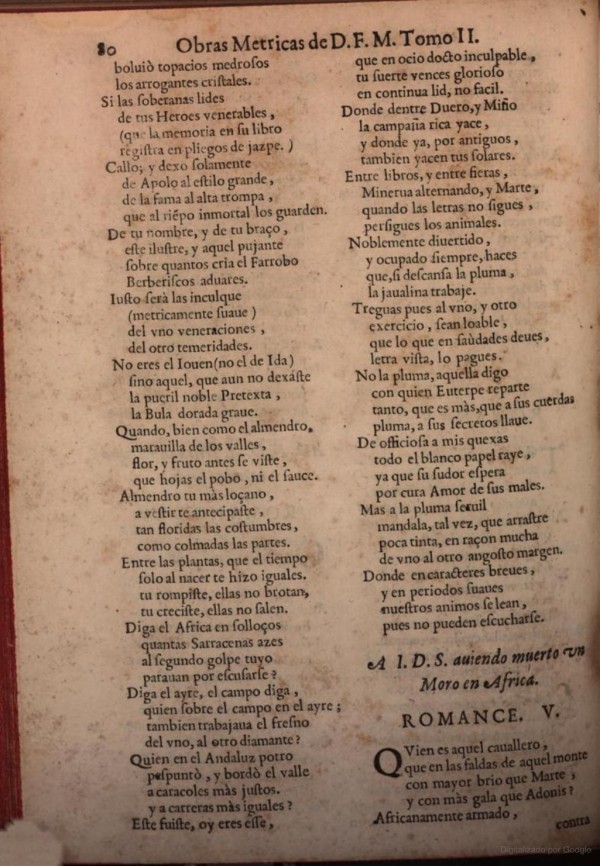 80 Obras Metricas de D. F. M. Tomo II.
boluiò topacios medroſos
los arrogantes criſtales.
Si las ſoberanas lides
de tus Heroes venerables,
(que la memoria en ſu libro
regiſtra en pliegos de jazpe.)
Callo; y dexo ſolamente
de Apolo al eſtilo grande,
de la fama al alta trompa,
que al tiẽpo inmortal los guarden.
De tu nombre, y de tu braço,
eſte iluſtre, y aquel pujante
ſobre quantos cria el Farrobo
Berberiſcos aduares.
Iuſto ſerà las inculque
(metricamente ſuaue)
del vno veneraciones,
del otro temeridades.
No eres el Iouen (no el de Ida)
ſino aquel, que aun no dexaſte
la pueril noble Pretexta,
la Bula dorada graue.
Quando, bien como el almendro,
marauilla de los valles,
flor, y fruto antes ſe viſte,
que hojas el pobo, ni el ſauce.
Almendro tu màs loçano,
a veſtirte antecipaſte,
tan floridas las coſtumbres,
como colmadas las partes.
Entre las plantas, que el tiempo
ſolo al nacer te hizo iguales.
tu rompiſte, ellas no brotan,
tu creciſte, ellas no ſalen.
Diga el Africa en ſolloços
quantas Sarracenas azes
al ſegundo golpe tuyo
parauan por eſcuſarſe?
Diga el ayre, el campo diga,
quien ſobre el campo en el ayre;
tambien trabajaua el freſno
del vno, al otro diamante?
Quien en el Andaluz potro
peſpuntò, y bordò el valle
a caracoles màs juſtos.
y a carreras màs iguales?
Eſte fuiſte, oy eres eſſe,
que en ocio docto inculpable,
tu ſuerte vences glorioſo
en continua lid, no facil.
Donde dentre Duero, y Miño
la campaña rica yace,
y donde ya, por antiguos,
tambien yacen tus ſolares.
Entre libros, y entre fieras,
Minerua alternando, y Marte,
quando las letras no ſigues,
perſigues los animales.
Noblemente diuertido,
y ocupado ſiempre, haces
que, ſi deſcanſa la pluma,
la jaualina trabaje.
Treguas pues al vno, y otro
exercicio, ſean loable,
que lo que en ſaùdades deues,
letra viſta, lo pagues.
No la pluma, aquella digo
con quien Euterpe reparte
tanto, que es màs, que a sus cuerdas
pluma, a ſus ſecretos llaue.
De officioſa a mis quexas
todo el blanco papel raye,
ya que ſu ſudor eſpera
por cura Amor de ſus males.
Mas a la pluma ſeruil
mandala, tal vez, que arraſtre
poca tinta, en raçon mucha
de vno al otro angoſto margen.
Donde en caracteres breues,
y en periodos ſuaues
nueſtros animos ſe lean,
pues no pueden eſcucharſe.
A I. D. S. auiendo muerto vn
Moro en Africa.
ROMANCE. V.
QVien es aquel cauallero,
que en las faldas de aquel monte
con mayor brio que Marte,
y con màs gala que Adonis?
Africanamente armado,
contra
Digitalizado por Google